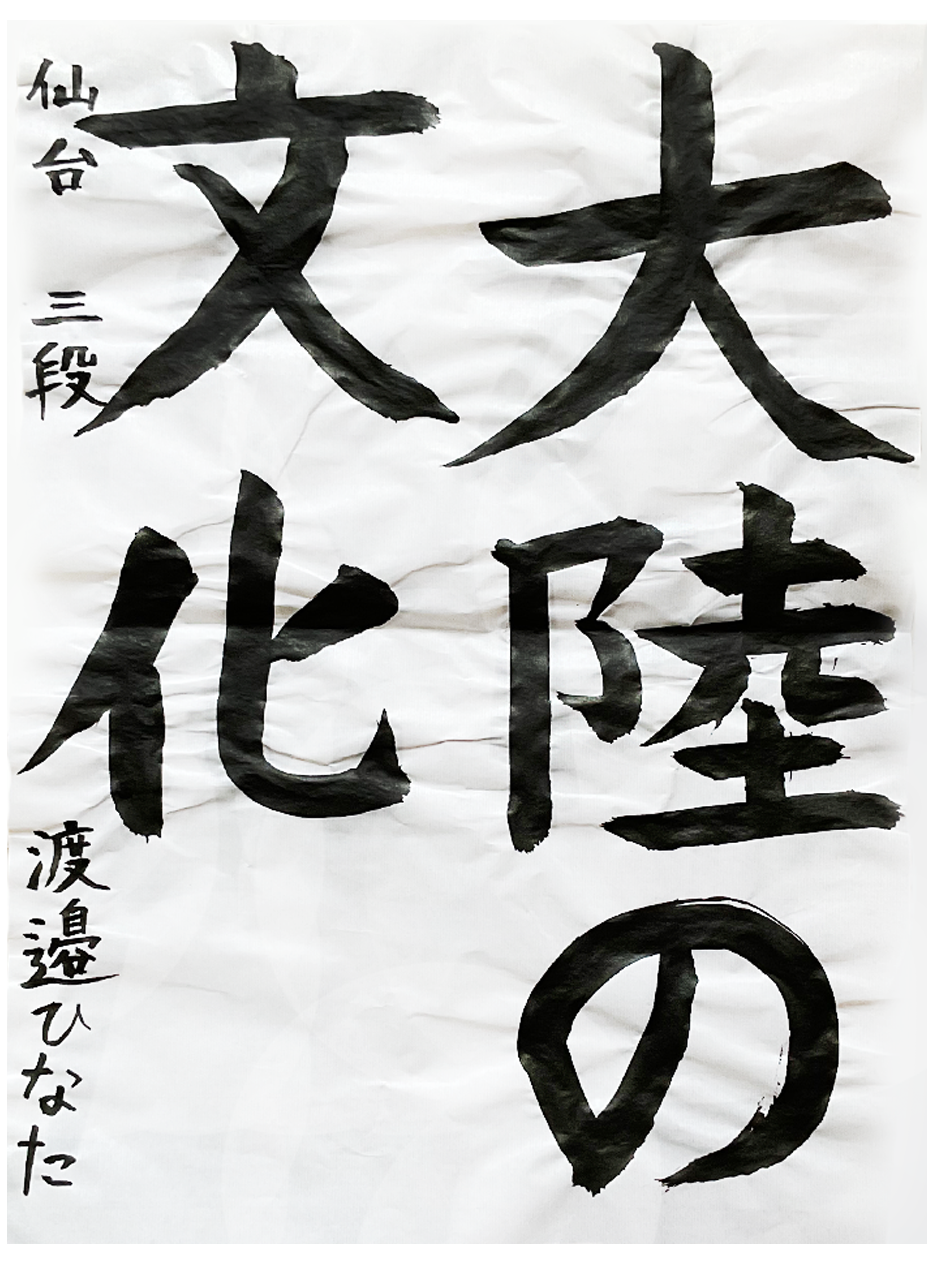 大陸の
文化
仙台 三段 渡邉ひなた